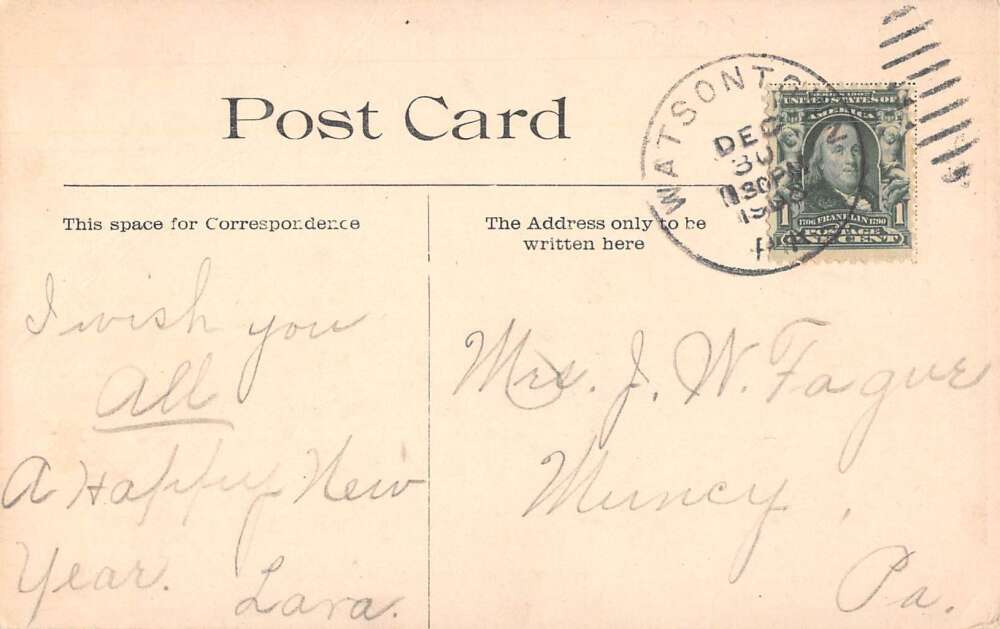 Post Card
This space for Correspondence
The Address only to be
written here
WATSONTOWN
DEC
30
30PM
PA
UNITED STATES OF
AMERICA
1706 FRANKLIN 1790
POSTAGE
1 ONE CENT 1
I wish you
All
A Happy New
Year. Lara.
Mrs. J. W. Fague
Muncy,
Pa.